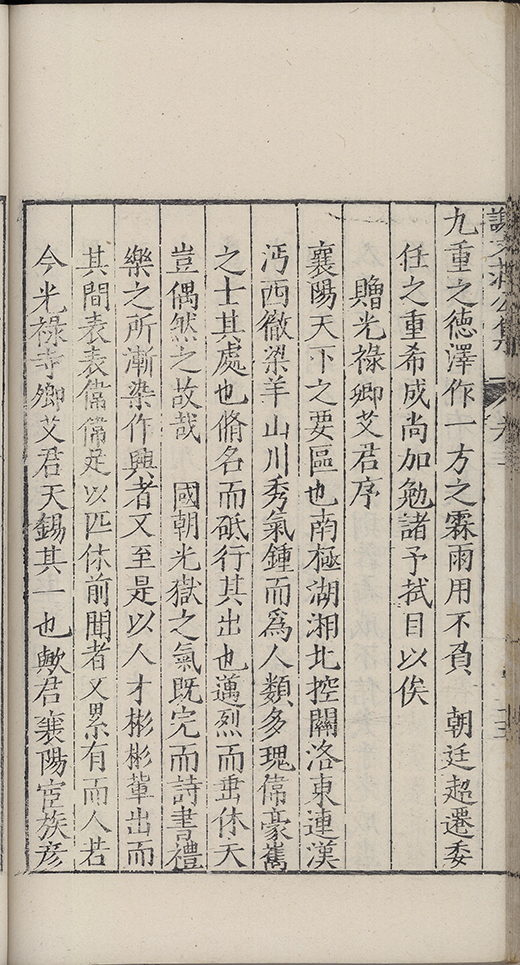 九重之德澤作一方之霖雨用不負　朝廷超遷委
任之重希成尚加勉諸予拭目以俟
贈光祿卿艾君序
襄陽天下之要區也南極湖湘北控關洛東連漢
沔西徹梁羊山川秀氣鍾而爲人類多瑰偉豪雋
之士其處也脩名而砥行其出也邁烈而垂休夫
豈偶然之故哉　國朝光嶽之氣旣完而詩書禮
樂之所漸染作興者又至是以人才彬彬輩出而
其間表表偉偉足以匹休前聞者又累有而人若
今光祿寺卿艾君天錫其一也歟君襄陽宦族彦